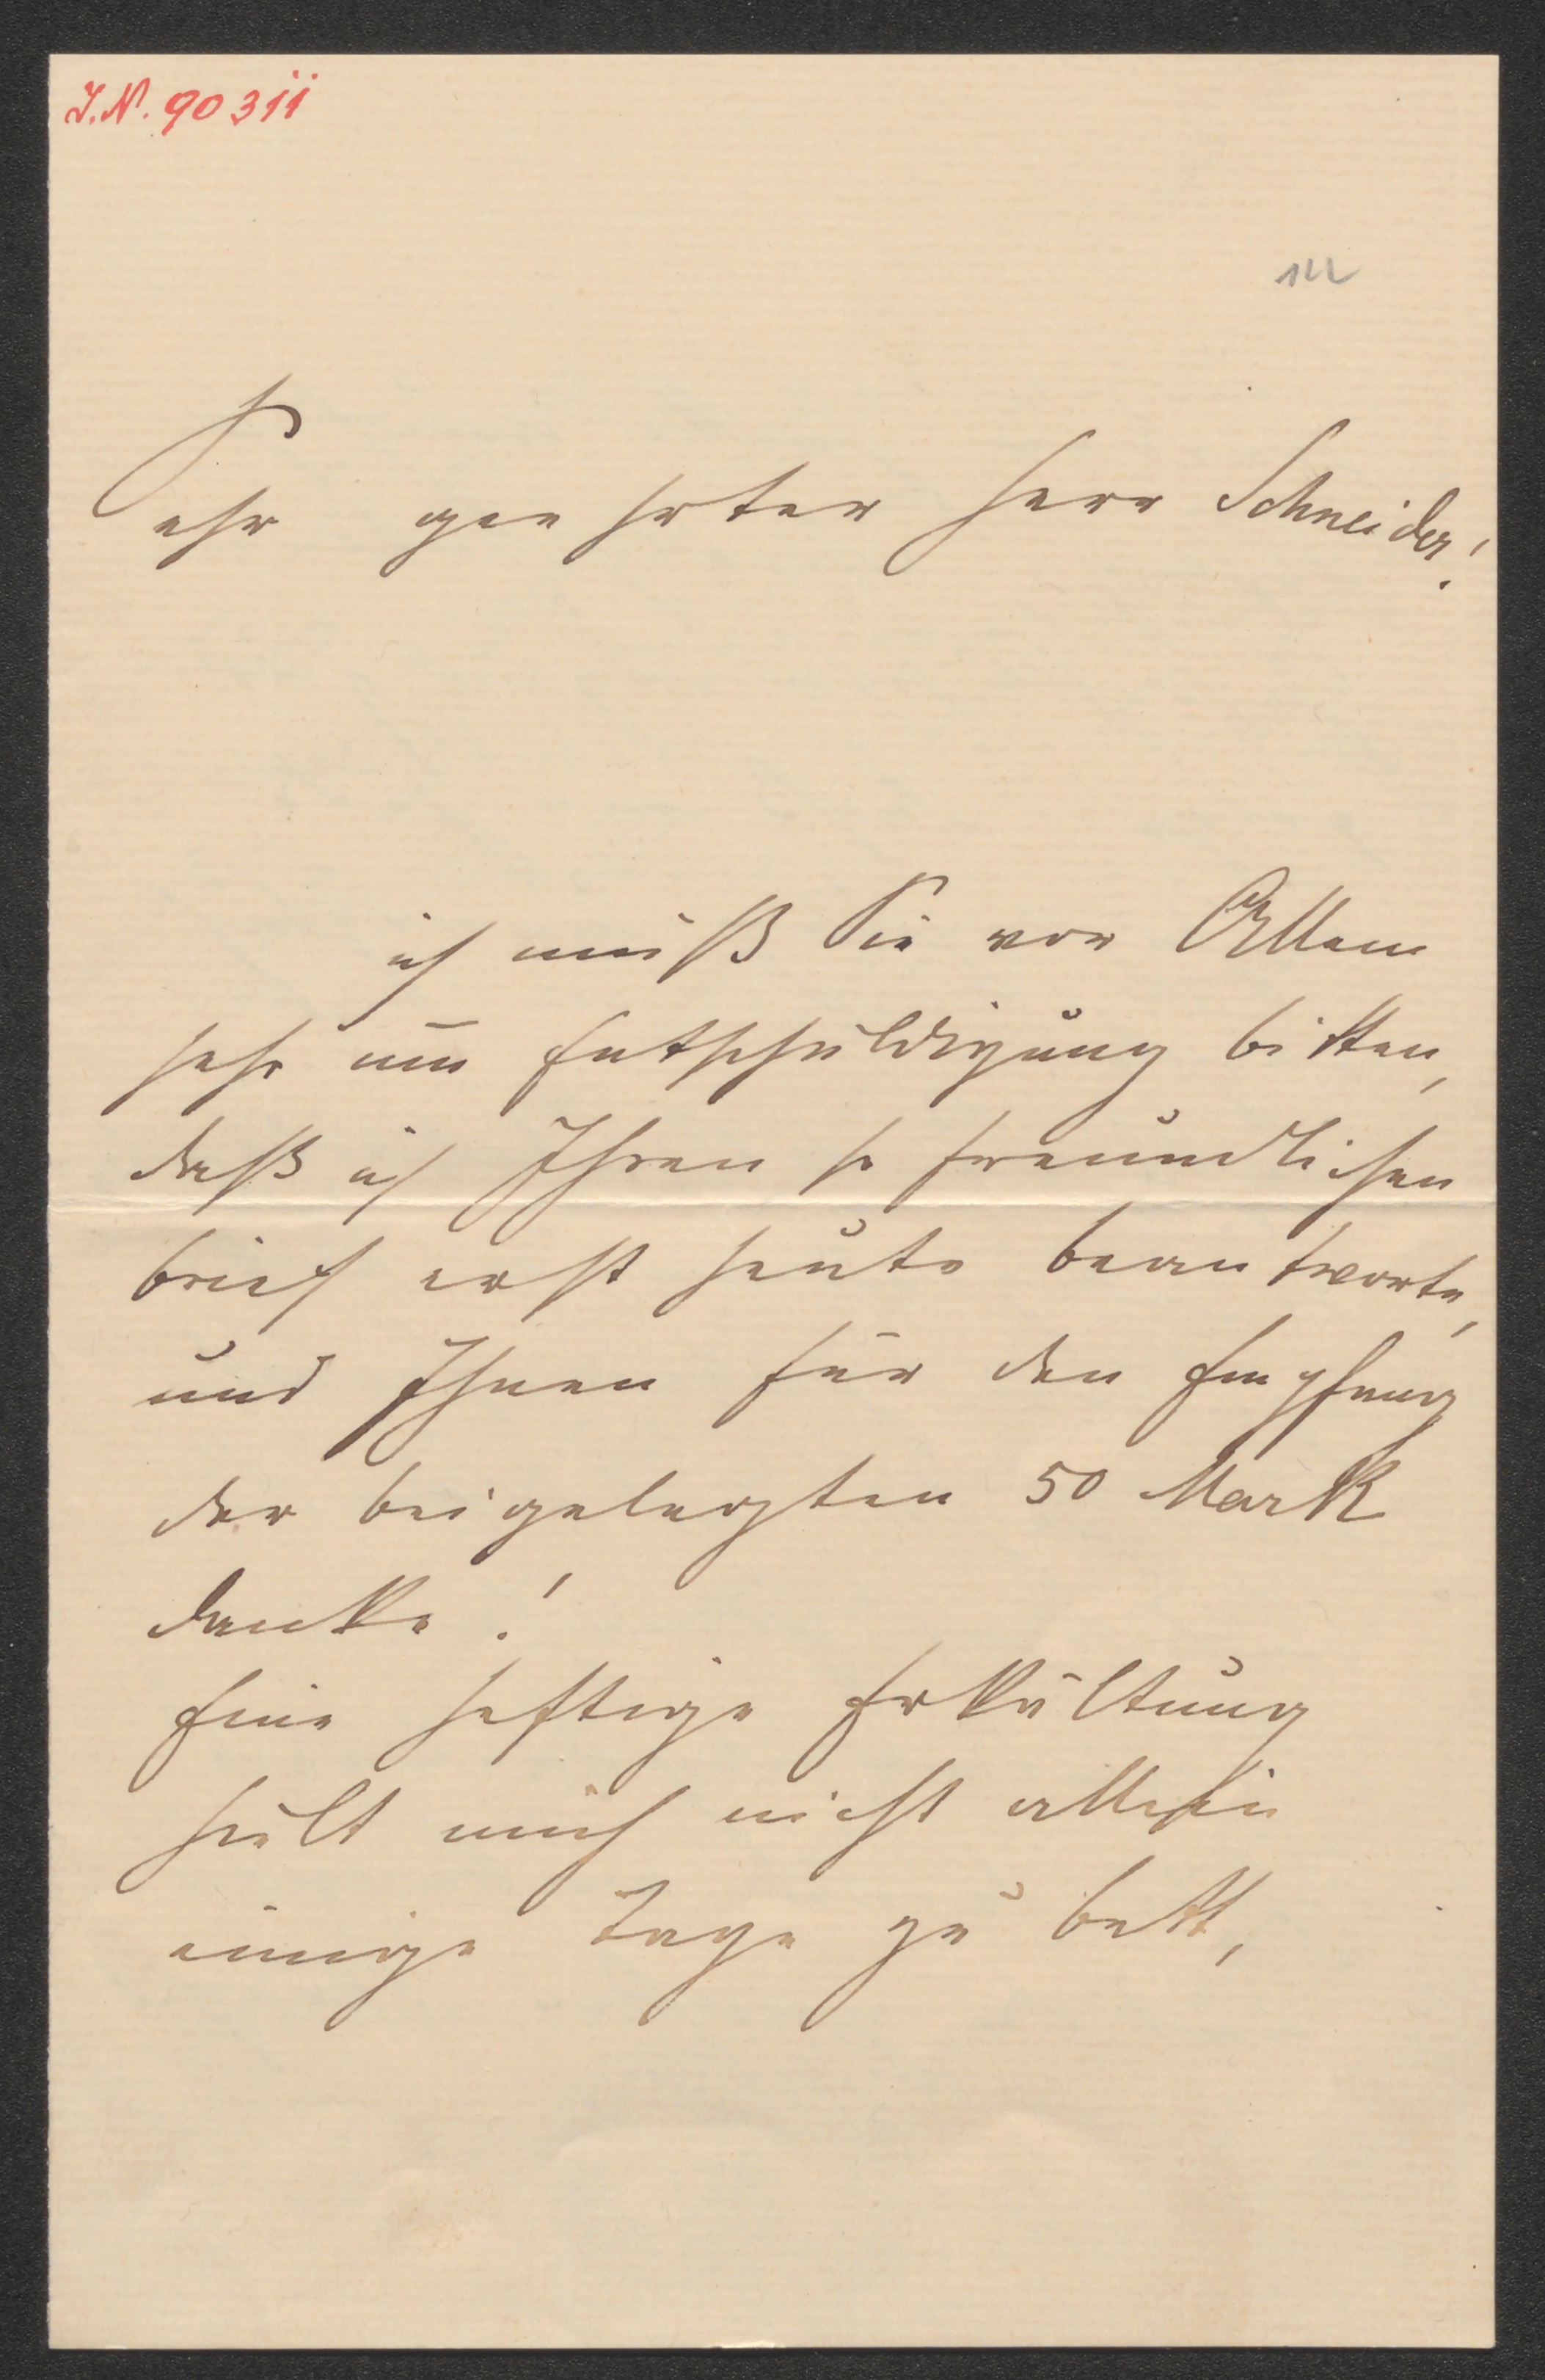 J.N. 90311
122
Sehr geehrter Herr Schneider!
ich muß Sie vor Allem
sehr um̅ Entschuldigung bitten,
daß ich Ihren so freundlichen
Brief erst heute beantworte,
und Ihnen für den Empfang
der beigelegten 50 Mark
danke!
Eine heftige Erkältung
hält mich nicht allein
einige Tage zu Bett,